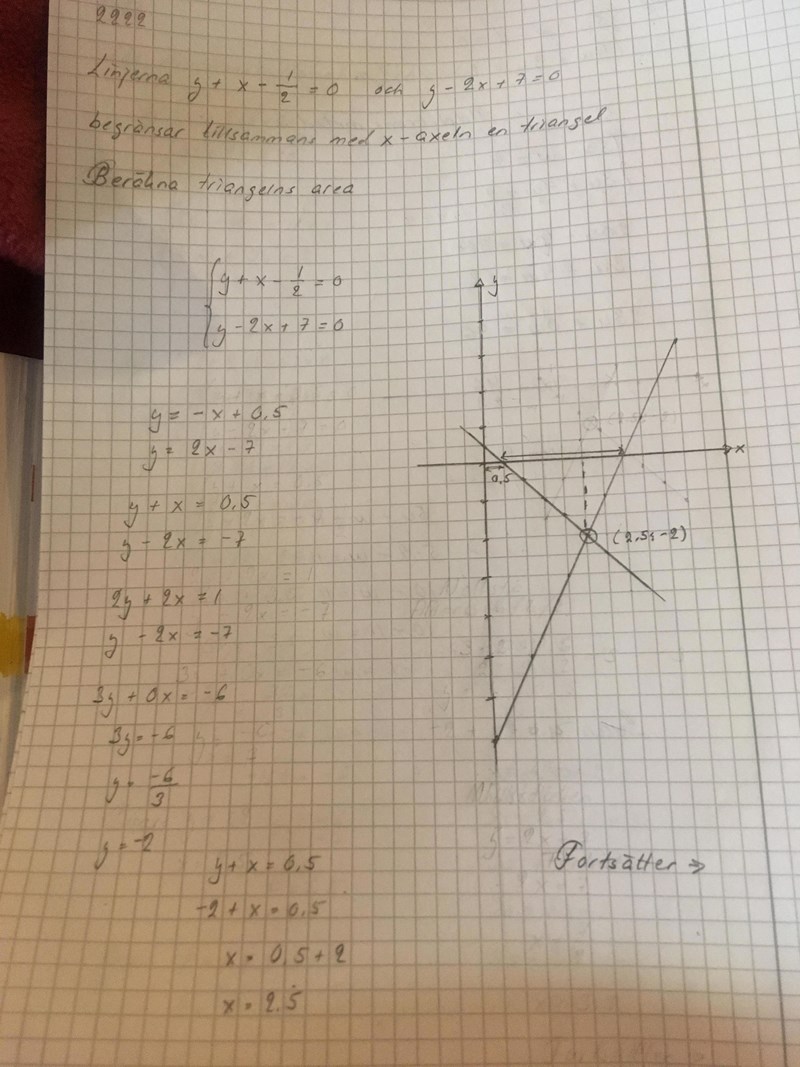 2222
Linjerna y + x - 1/2 = 0 och y - 2x + 7 = 0
begränsar tillsammans med x-axeln en triangel
Beräkna triangelns area
y + x - 1/2 = 0
y - 2x + 7 = 0
y = -x + 0,5
y = 2x - 7
y + x = 0,5
y - 2x = -7
2y + 2x = 1
y - 2x = -7
3y + 0x = -6
3y = -6
y = -6/3
y = -2
y + x = 0,5
-2 + x = 0,5
x = 0,5 + 2
x = 2,5
y
x
0,5
(2,5; -2)
Fortsätter ⇒